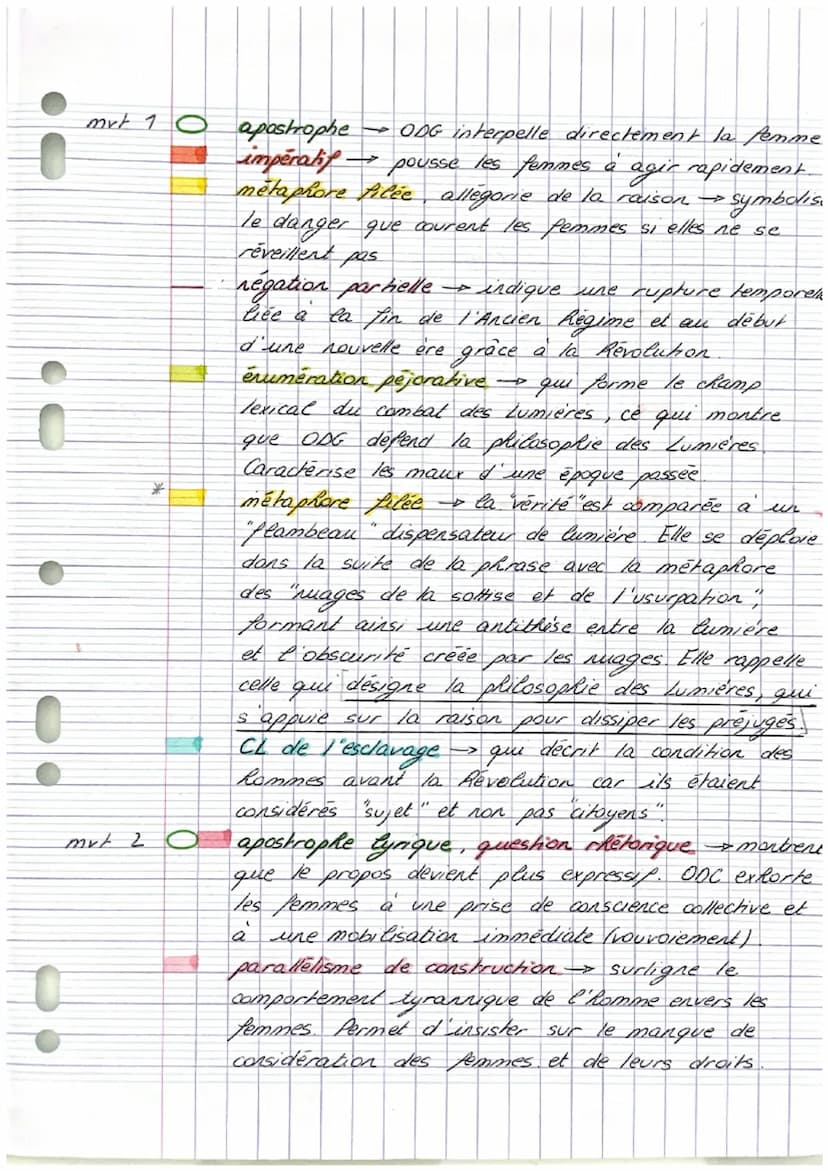 mvt 1 apostrophe → ODG interpelle directement la femme
impératif → pousse les femmes à agir rapidement.
métaphore filée, allégorie de la raison → symbolise
le danger que courent les femmes si elles ne se
réveillent pas
négation partielle → indique une rupture temporelle
liée à la fin de l'Ancien Régime et au début
d'une nouvelle ère grâce à la Révolution.
énumération péjorative → qui forme le champ
lexical du combat des Lumières, ce qui montre
que ODG défend la philosophie des Lumières.
Caractérise les maux d'une époque passée
* métaphore filée → la "vérité" est comparée à un
"flambeau" dispensateur de lumière. Elle se déploie
dans la suite de la phrase avec la métaphore
des "nuages de la sottise et de l'usurpation",
formant ainsi une antithèse entre la lumière
et l'obscurité créée par les nuages. Elle rappelle
celle qui désigne la philosophie des Lumières, qui
s'appuie sur la raison pour dissiper les préjugés.
CL de l'esclavage → qui décrit la condition des
hommes avant la Révolution car ils étaient
considérés "sujet" et non pas "citoyens".
mvt 2 apostrophe lyrique, question rhétorique → montrent
que le propos devient plus expressif. ODC exhorte
les femmes à une prise de conscience collective et
à une mobilisation immédiate (vouvoiement)
parallélisme de construction → surligne le
comportement tyrannique de l'homme envers les
femmes. Permet d'insister sur le manque de
considération des femmes et de leurs droits.